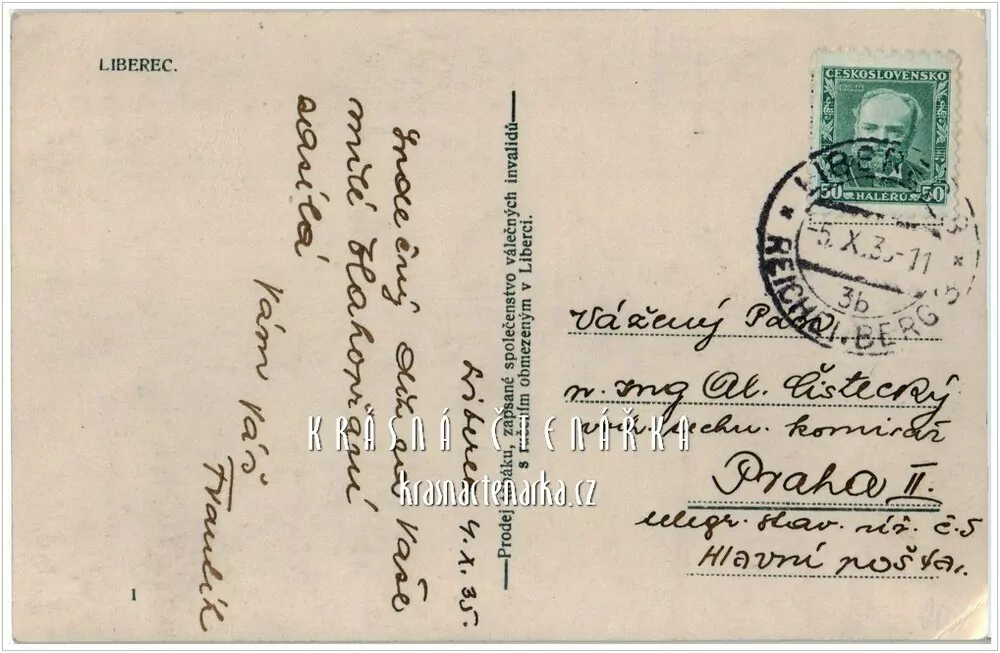 LIBEREC.
ČESKOSLOVENSKO
50 HALÉŘŮ 50
LIBEREC
5. X. 35-11
3b
REICHENBERG
Liberec 4. X. 35.
Srdečný dík za Vaše
milé blahopřání
zasílá
Vám Váš
Frantík
Prodej tabáku, zapsané společenstvo válečných invalidů
s ručením obmezeným v Liberci.
Vážený Pan
p. Ing Al. Čistecký
techn. komisař
Praha II.
telegr. stav. úř. č. 5
Hlavní pošta.
KRÁSNÁ ČTENÁŘKA
krasnactenarka.cz
1